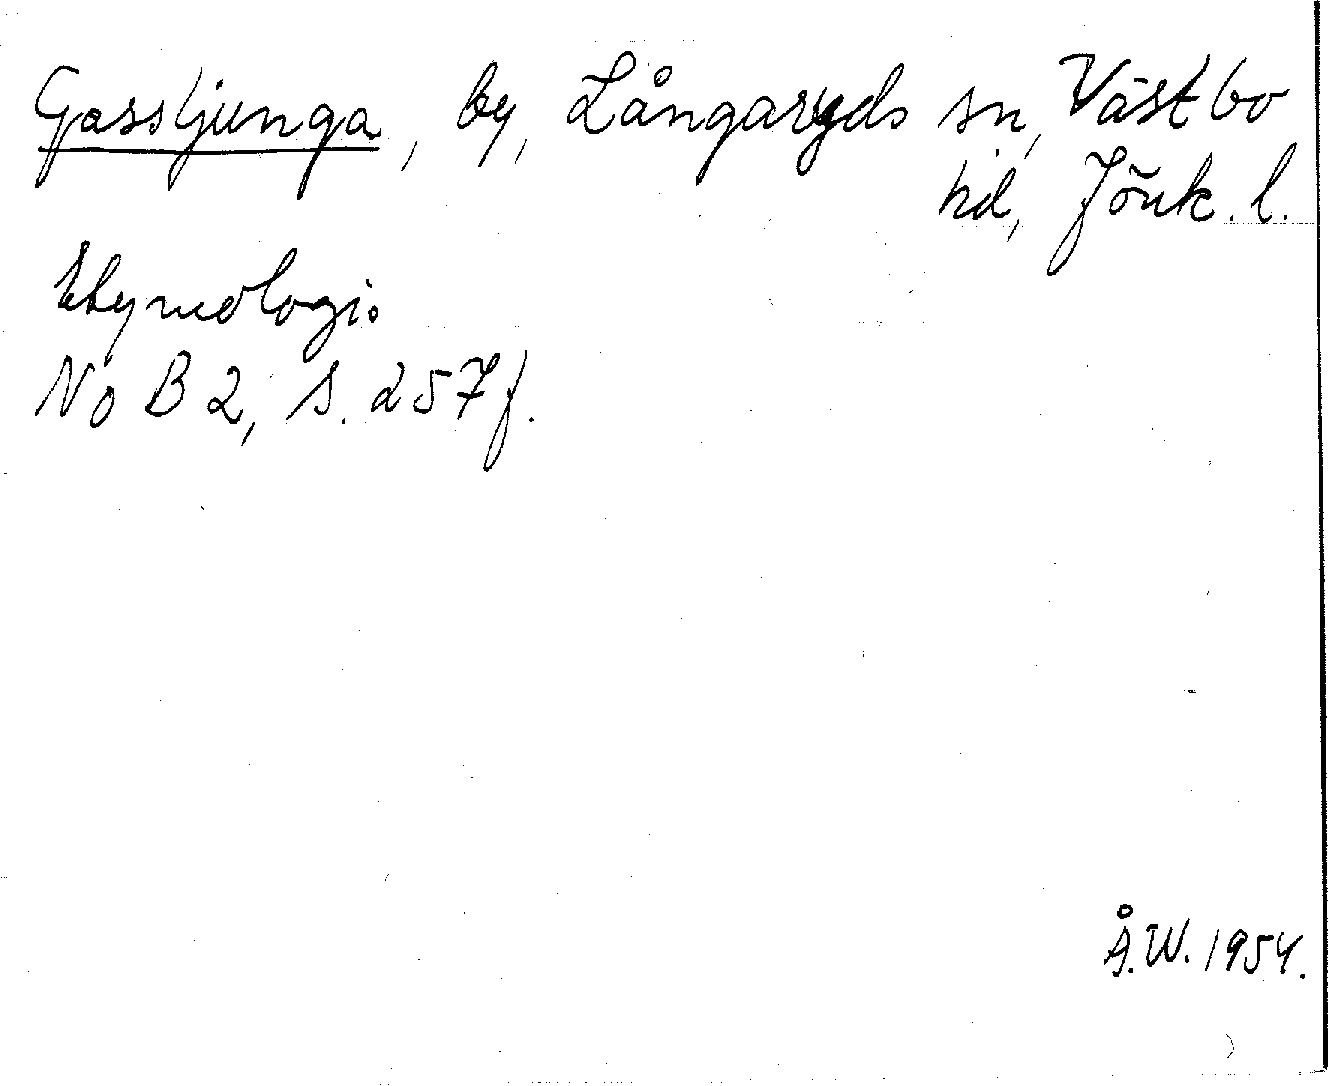 Gassljunga, by, Långaryds sn, Västbo
hd, Jönk. l.
Etymologi.
No B 2, s. 257 f.
Å.W. 1954.